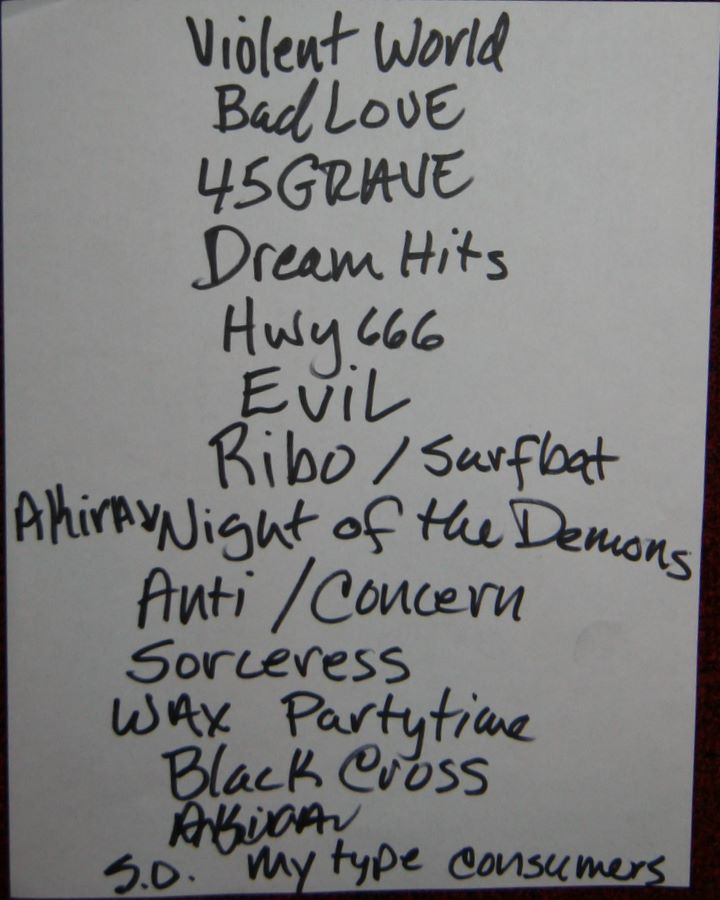 Violent World
Bad LOVE
45 GRAVE
Dream Hits
Hwy 666
EViL
Ribo / Surfbat
Night of the Demons
Anti / Concern
Sorceress
WAX Partytime
Black Cross
S.D. My type consumers